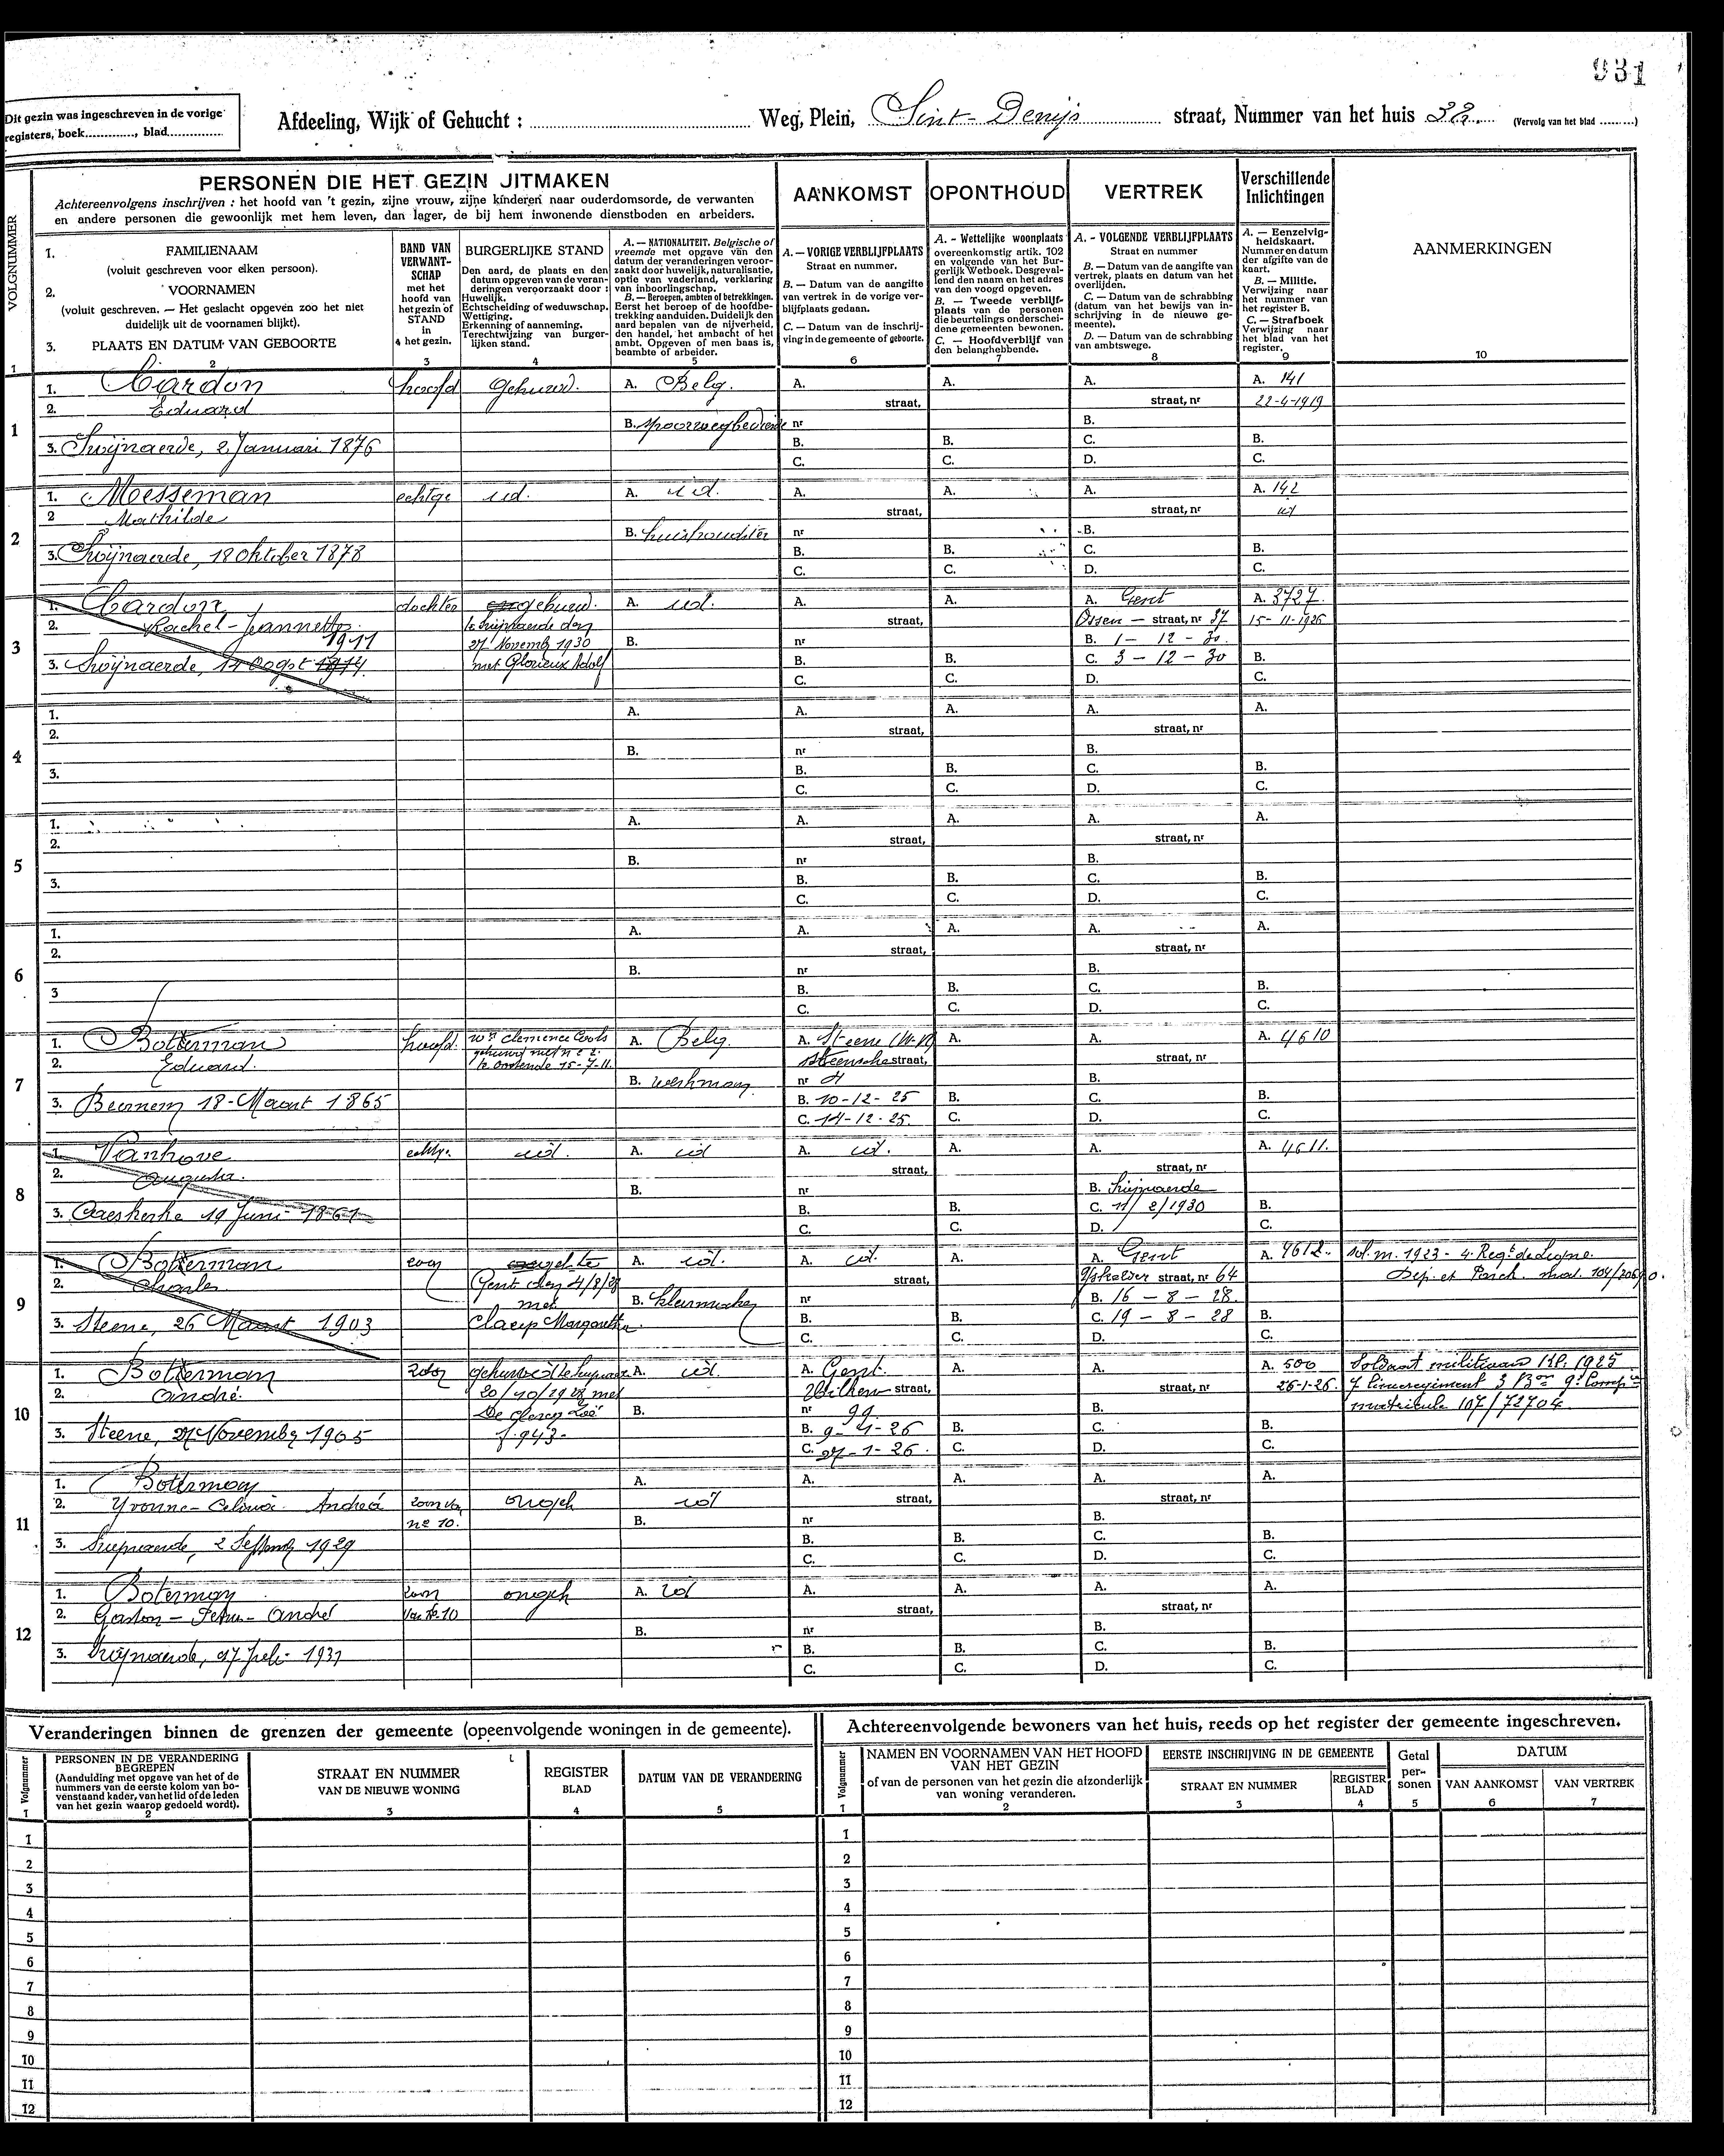 931
Dit gezin was ingeschreven in de vorige
registers, boek............., blad..............
Afdeeling, Wijk of Gehucht : Weg, Plein, Sint-Denijs straat, Nummer van het huis 32. (Vervolg van het blad .........)
VOLGNUMMER
PERSONEN DIE HET GEZIN UITMAKEN
Achtereenvolgens inschrijven : het hoofd van 't gezin, zijne vrouw, zijne kinderen naar ouderdomsorde, de verwanten
en andere personen die gewoonlijk met hem leven, dan lager, de bij hem inwonende dienstboden en arbeiders.
1. FAMILIENAAM
(voluit geschreven voor elken persoon).
2. VOORNAMEN
(voluit geschreven. — Het geslacht opgeven zoo het niet
duidelijk uit de voornamen blijkt).
3. PLAATS EN DATUM VAN GEBOORTE
2
BAND VAN
VERWANT-
SCHAP
met het
hoofd van
het gezin of
STAND
in
het gezin.
3
BURGERLIJKE STAND
Den aard, de plaats en den
datum opgeven van de veran-
deringen veroorzaakt door :
Huwelijk.
Echtscheiding of weduwschap.
Wettiging.
Erkenning of aanneming.
Terechtwijzing van burger-
lijken stand.
4
A. — NATIONALITEIT. Belgische of
vreemde met opgave van den
datum der veranderingen veroor-
zaakt door huwelijk, naturalisatie,
optie van vaderland, verklaring
van inboorlingschap.
B. — Beroepen, ambten of betrekkingen.
Eerst het beroep of de hoofdbe-
trekking aanduiden. Duidelijk den
aard bepalen van de nijverheid,
den handel, het ambacht of het
ambt. Opgeven of men baas is,
beambte of arbeider.
5
AANKOMST
A. — VORIGE VERBLIJFPLAATS
Straat en nummer.
B. — Datum van de aangifte
van vertrek in de vorige ver-
blijfplaats gedaan.
C. — Datum van de inschrij-
ving in de gemeente of geboorte.
6
OPONTHOUD
A. - Wettelijke woonplaats
overeenkomstig artik. 102
en volgende van het Bur-
gerlijk Wetboek. Desgeval-
lend den naam en het adres
van den voogd opgeven.
B. — Tweede verblijf-
plaats van de personen
die beurtelings onderschei-
dene gemeenten bewonen.
C. — Hoofdverblijf van
den belanghebbende.
7
VERTREK
A. - VOLGENDE VERBLIJFPLAATS
Straat en nummer
B. — Datum van de aangifte van
vertrek, plaats en datum van het
overlijden.
C. — Datum van de schrabbing
(datum van het bewijs van in-
schrijving in de nieuwe ge-
meente).
D. — Datum van de schrabbing
van ambtswege.
8
Verschillende
Inlichtingen
A. — Eenzelvig-
heidskaart.
Nummer en datum
der afgifte van de
kaart.
B. — Militie.
Verwijzing naar
het nummer van
het register B.
C. — Strafboek
Verwijzing naar
het blad van het
register.
9
AANMERKINGEN
10
1
1. Cardon hoofd gehuwd. A. Belg. A. A. A. A. 141
2. Eduard straat, straat, nr 22-4-1919
B. spoorwegbediende nr B.
3. Swijnaerde, 2 Januari 1876 B. B. C. B.
C. C. D. C.
2
1. Moesseman echtge id. A. id. A. A. A. A. 142
2 Mathilde straat, straat, nr id
B. huishoudster nr B.
3. Swijnaerde, 18 Oktober 1878 B. B. C. B.
C. C. D. C.
3
1. Cardon dochter gehuwd. A. id. A. A. A. Gent A. 3727
2. Rachel-Jeannette te Swijnaerde den straat, Ossen — straat, nr 37 15-11-1926
1911 27 Novemb 1930 B. nr B. 1 - 12 - 30.
3. Swijnaerde, 11 Oogst 1914. met Glorieux Adolf B. B. C. 3 - 12 - 30 B.
C. C. D. C.
4
1. A. A. A. A. A.
2. straat, straat, nr
B. nr B.
3. B. B. C. B.
C. C. D. C.
5
1. A. A. A. A. A.
2. straat, straat, nr
B. nr B.
3. B. B. C. B.
C. C. D. C.
6
1. A. A. A. A. A.
2. straat, straat, nr
B. nr B.
3 B. B. C. B.
C. C. D. C.
7
1. Botterman hoofd. Wr Clemence Cools A. Belg. A. Steene (W-Vl) A. A. A. 4610
gehuwd met n° 2.
2. Eduard. te Oostende 15-7-11. Steensche straat, straat, nr
B. werkman nr B.
3. Beernem 18-Maart 1865 B. 10-12-25 B. C. B.
C. 14-12-25. C. D. C.
8
1. Vanhove echtg. id. A. id A. id. A. A. A. 4611.
2. Augusta. straat, straat, nr
B. nr B. Swijnaerde
3. Caeskerke 19 Juni 1861 B. B. C. 11/2/1930 B.
C. C. D. C.
9
1. Botterman zoon A. id. A. id. A. A. Gent A. 4612. sol. m. 1923 - 4. Regt de Ligne.
2. Charles Gent den 4/8/28 straat, straat, nr 64
met B. kleermaker nr B. 16 - 8 - 28.
3. Steene, 26 Maart 1903 Claeys Margaretha B. B. C. 19 - 8 - 28 B.
C. C. D. C.
10
1. Botterman zoon A. id. A. Gent. A. A. A. 500 Soldaat 1925
2. André. 20/10/1928 met straat, straat, nr 26-1-26.
B. nr 99 B. matricule 107/72704
3. Steene, 27 Novemb 1905 f. 943- B. 9-1-26 B. C. B.
C. 27-1-26. C. D. C.
11
1. Botterman A. A. A. A. A.
2. Yvonne- Andréa zoon van ongeh id straat, straat, nr
n° 10. B. nr B.
3. Swijnaerde, 2 Septemb 1929 B. B. C. B.
C. C. D. C.
12
1. Boterman zoon ongeh A. id A. A. A. A.
2. Gaston - Petrus - André van N° 10 straat, straat, nr
B. nr B.
3. Swijnaerde, 17 Juli 1931 B. B. C. B.
C. C. D. C.
Veranderingen binnen de grenzen der gemeente (opeenvolgende woningen in de gemeente).
Volgnummer
1
PERSONEN IN DE VERANDERING
BEGREPEN
(Aanduiding met opgave van het of de
nummers van de eerste kolom van bo-
venstaand kader, van het lid of de leden
van het gezin waarop gedoeld wordt).
2
STRAAT EN NUMMER
VAN DE NIEUWE WONING
3
REGISTER
BLAD
4
DATUM VAN DE VERANDERING
5
1
2
3
4
5
6
7
8
9
10
11
12
Achtereenvolgende bewoners van het huis, reeds op het register der gemeente ingeschreven.
Volgnummer
1
NAMEN EN VOORNAMEN VAN HET HOOFD
VAN HET GEZIN
of van de personen van het gezin die afzonderlijk
van woning veranderen.
2
EERSTE INSCHRIJVING IN DE GEMEENTE
STRAAT EN NUMMER
3
REGISTER
BLAD
4
Getal
per-
sonen
5
DATUM
VAN AANKOMST
6
VAN VERTREK
7
1
2
3
4
5
6
7
8
9
10
11
12